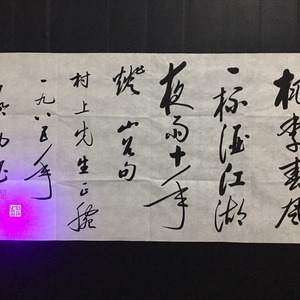 桃李春風
一杯酒江湖
夜雨十年
燈 山谷句
村上先生正腕
一九八五年